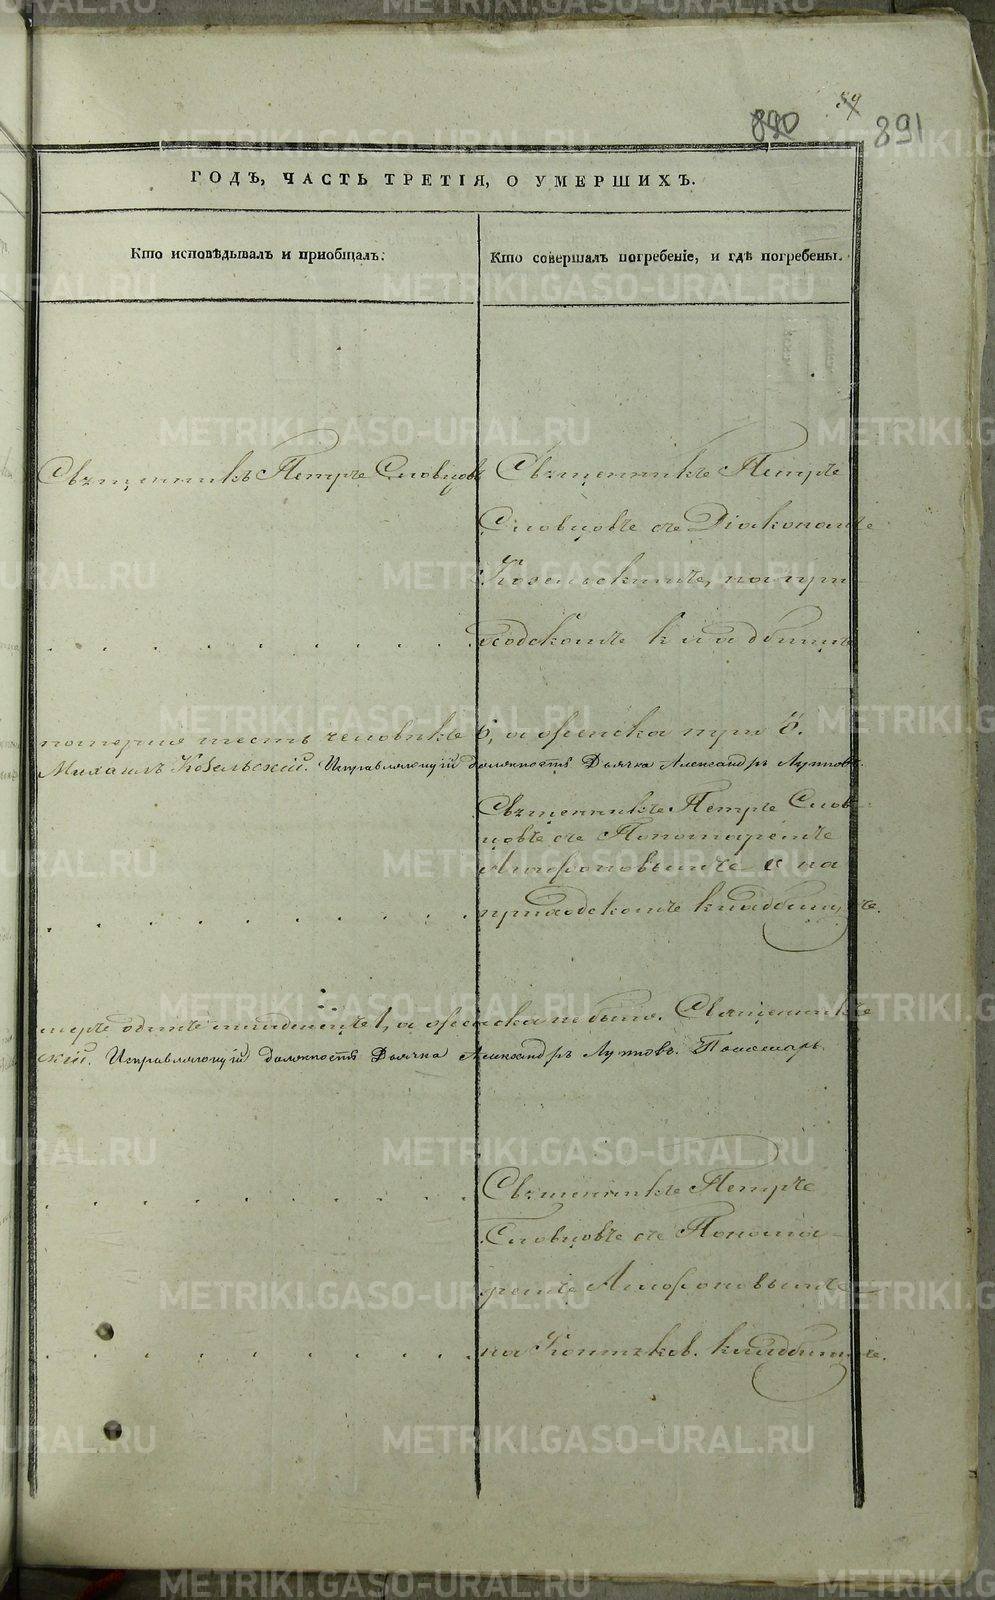 59
890 891
ГОДЪ, ЧАСТЬ ТРЕТІЯ, О УМЕРШИХЪ.
Кто исповѣдывалъ и приобщалъ.
Кто совершалъ погребеніе, и гдѣ погребены.
Священникъ Петръ Словцовъ
Священникъ Петръ
Словцовъ съ Діакономъ
Козельскимъ, на при-
ходскомъ кладбищѣ
шесть человѣкъ 6, а женска три 3.
Михаилъ Козельскій. Исправляющій должность Дьячка Александръ Лупповъ.
Священникъ Петръ Слов-
цовъ съ Пономаремъ
на
приходскомъ кладбищѣ.
меръ одинъ младенецъ 1, а женска небыло. Священникъ
скій. Исправляющій должность Дьячка Александръ Лупповъ. Пономарь
Священникъ Петръ
Словцовъ съ Понома-
ремъ
на кладбищѣ.
METRIKI.GASO-URAL.RU